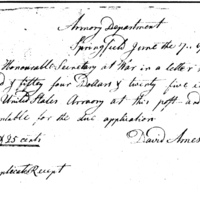 Armory Department
Springfield June the 17
Honourable Secretary at War in a letter
of fifty four Dollars & twenty five
United States Armory at this post and
for the due application
David Ames
25 cents
Duplicate Receipt